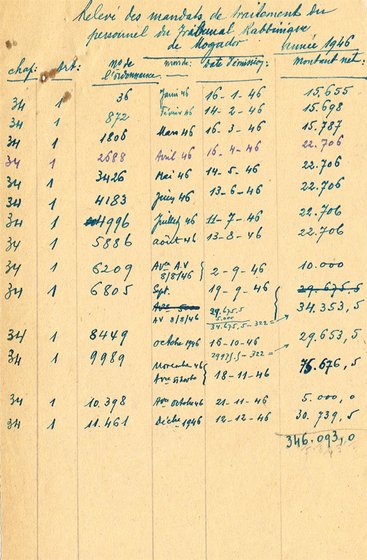 Relevé des mandats de traitement du
personnel du Tribunal Rabbinique
de Mogador
année 1946
chap: Art: No de l'ordonnance mois: Date d'émission: Montant net:
34 1 36 Janv 46 16-1-46 15.655
34 1 872 Févr 46 14-2-46 15.698
34 1 1806 Mars 46 16-3-46 15.787
34 1 2688 Avril 46 16-4-46 22.706
34 1 3426 Mai 46 14-5-46 22.706
34 1 4183 Juin 46 13-6-46 22.706
34 1 4996 Juillet 46 11-7-46 22.706
34 1 5886 août 46 13-8-46 22.706
34 1 6209 Avce A.V 8/8/46 2-9-46 10.000
34 1 6805 Sept. 19-9-46 29.675,5
Avce 5000 29.675,5
AV 8/8/46 5.000 34.353,5
34.675,5-322=
34 1 8449 octobre 1946 16-10-46 29.653,5
29975,5-322=
34 1 9989 Novembre 46 18-11-46 75.676,5
34 1 10.398 Avce octobre 46 21-11-46 5.000,0
34 1 11.461 Décbre 1946 12-12-46 30.739,5
346.093,0